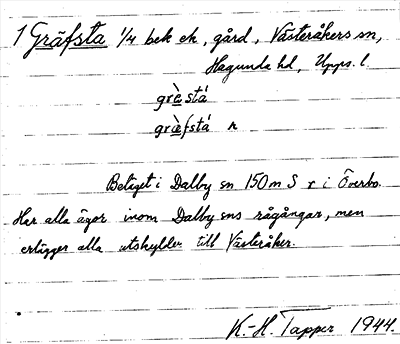 1 Gräfsta 1/4 bek ek, gård, Västeråkers sn,
Hagunda hd, Upps. l.
grὲstá
grὲfstá r
Beläget i Dalby sn 150 m S r i Överbo.
Har alla ägor inom Dalby sns rågångar, men
erlägger alla utskylder till Västeråker.
K.-H. Tapper 1944.